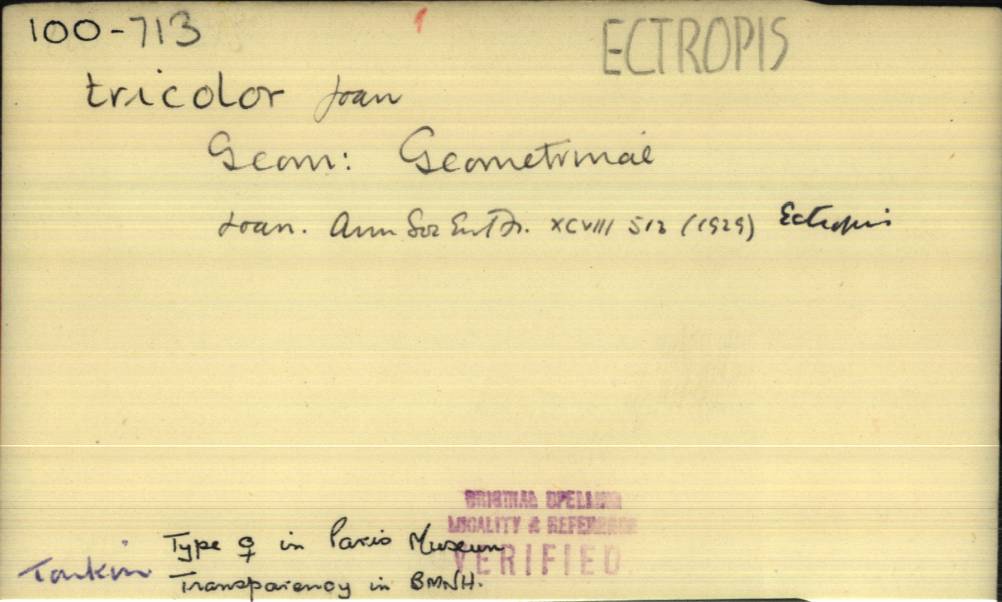 100-713
ECTROPIS
tricolor Joan
Geom: Geometrinae
Joan. Ann Soc Ent Fr. XCVIII 512 (1929) Ectropis
ORIGINAL SPELLING
LOCALITY & REFERENCE
VERIFIED
Type ♀ in Paris Museum
Tonkin
Transparency in BMNH.